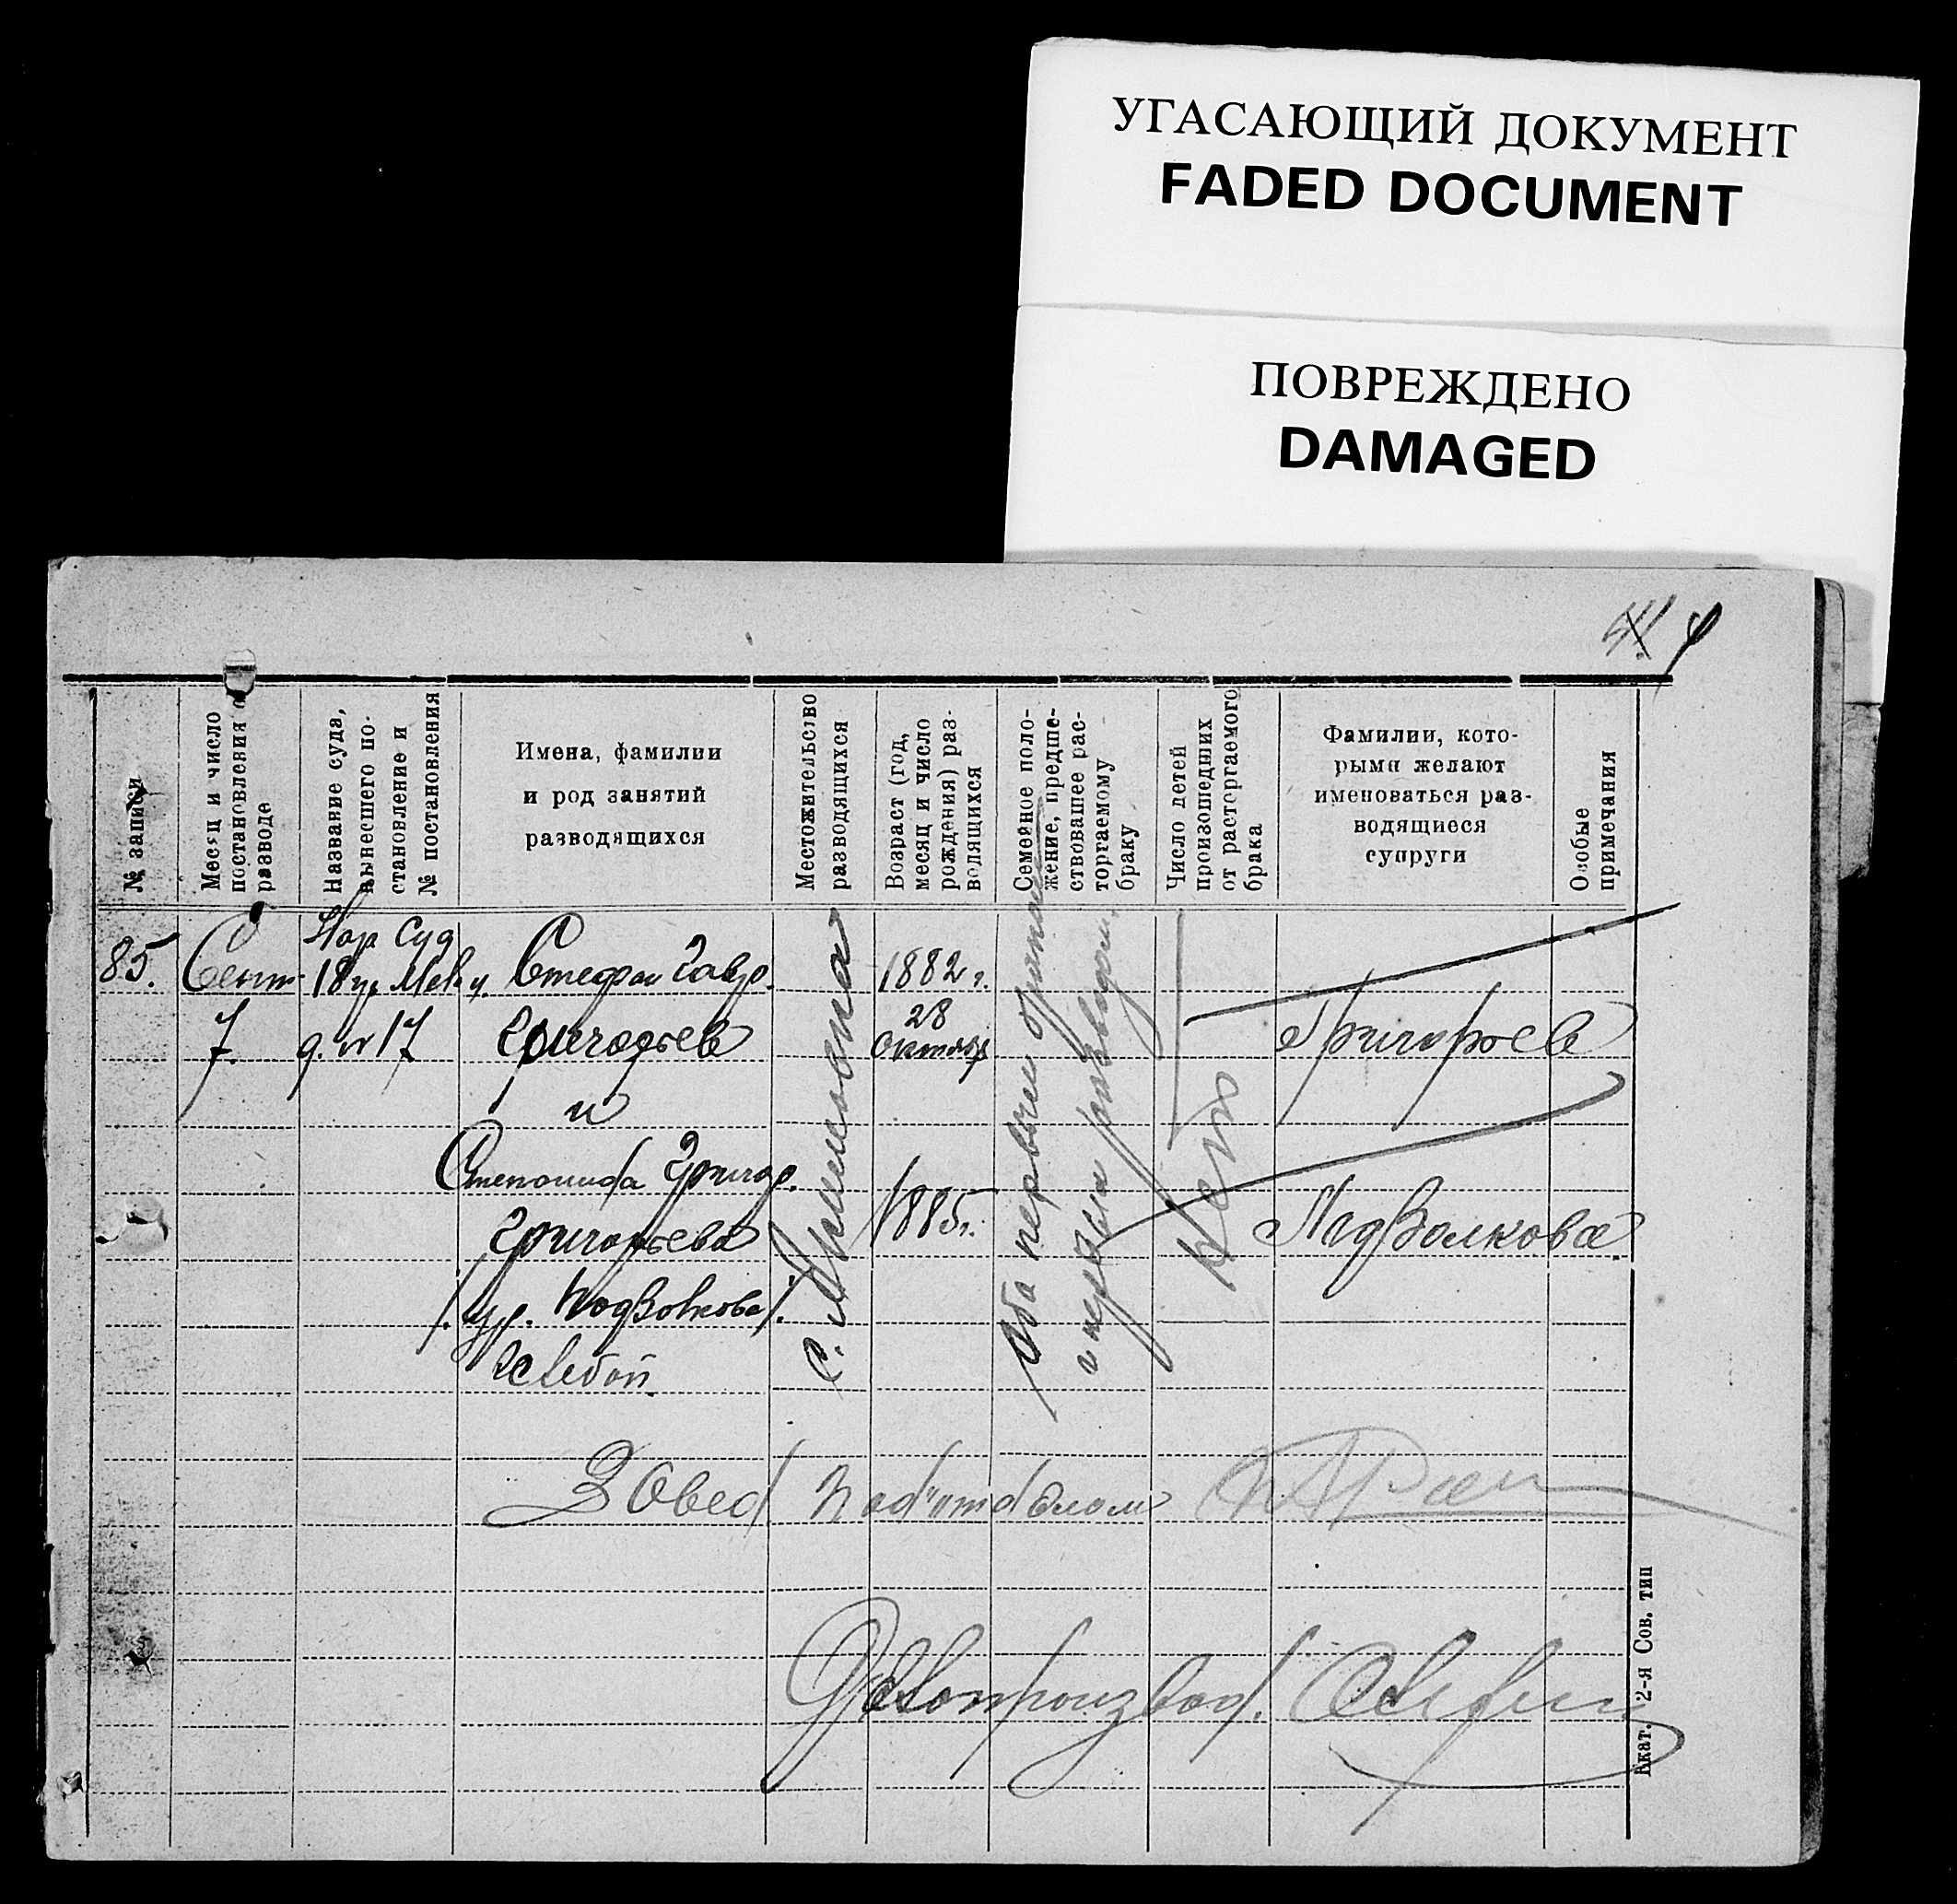 УГАСАЮЩИЙ ДОКУМЕНТ
FADED DOCUMENT
ПОВРЕЖДЕНО
DAMAGED
№ записи
Месяц и число
постановления о
разводе
Название суда,
вынесшего по-
становление и
№ постановления
Имена, фамилии
и род занятий
разводящихся
Местожительство
разводящихся
Возраст (год,
месяц и число
рождения) раз-
водящихся
Семейное поло-
жение, предше-
ствовавшее рас-
торгаемому
браку
Число детей
произошедших
от расторгаемого
брака
Фамилии, кото-
рыми желают
именоваться раз-
водящиеся
супруги
Особые
примечания
85.
Сент
7.
Нар Суд
18 уч.
д. № 17
Стефан Гавр.
Григорьев
и
Степанида Григор.
Григорьева
/. ур. Подволкова /.
1882 г.
28
Октябр
1885 г.
Оба первым браком
и первым разводом.
Нет
Григорьев
Подволкова
Завед Подотделом
Делопроизвод.
Екат. 2-я Сов. тип